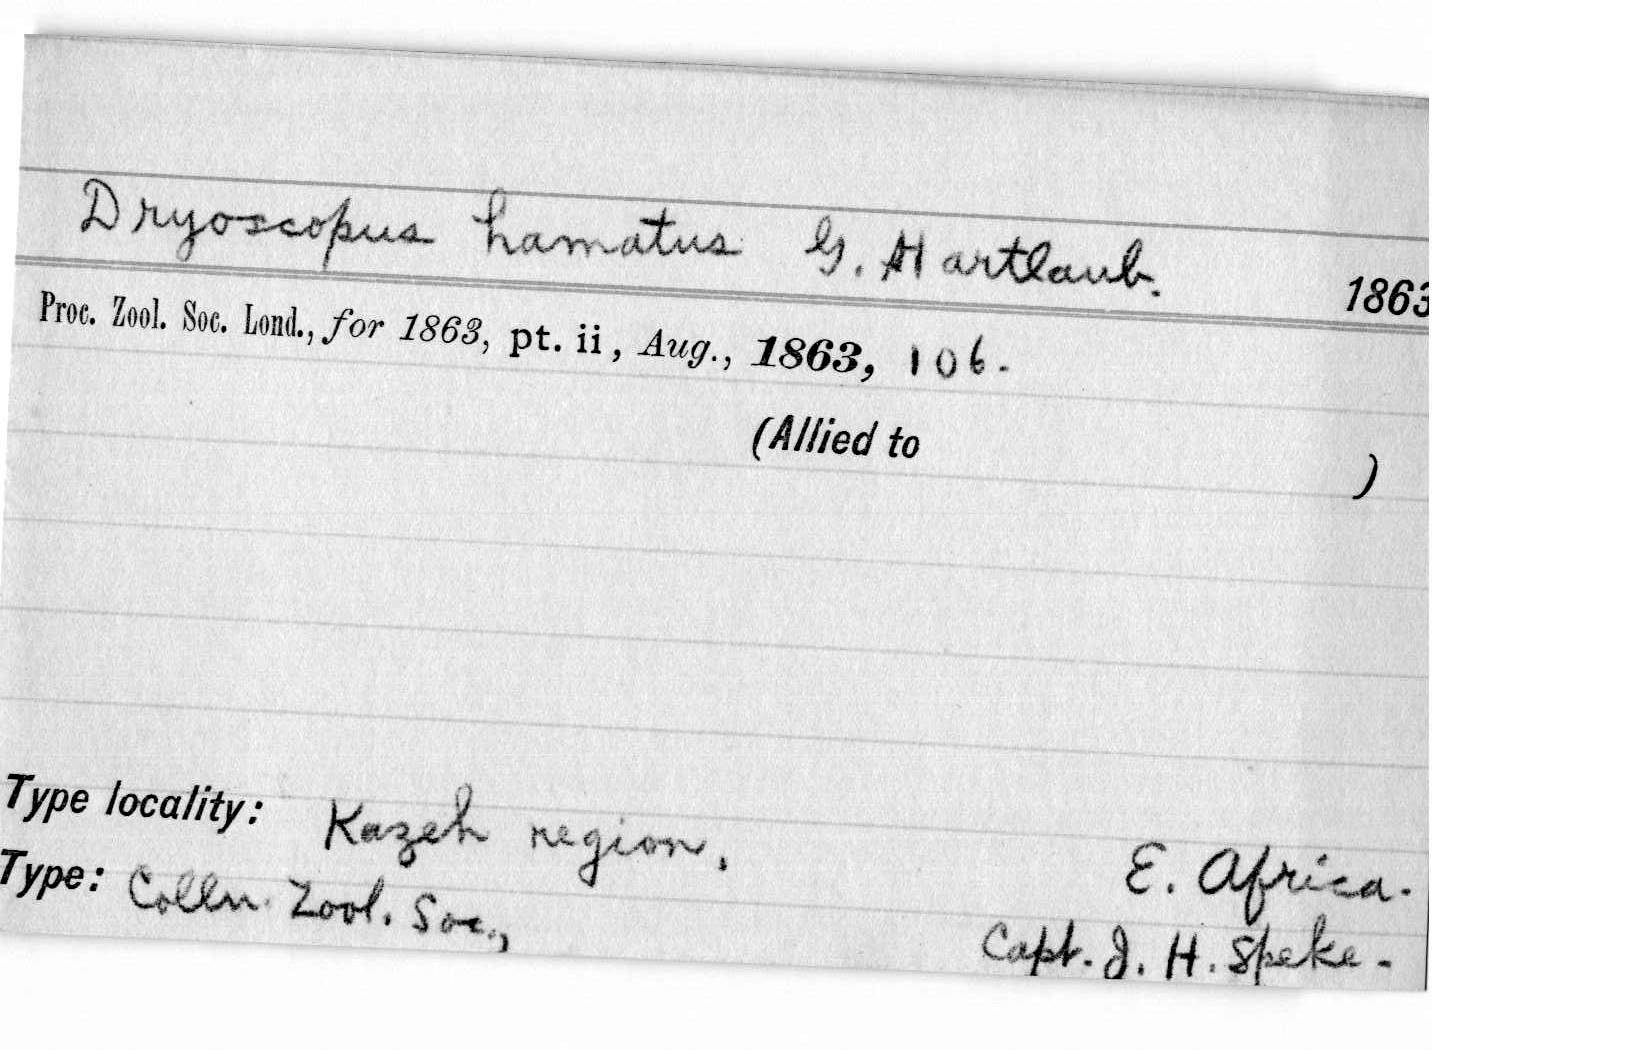 Dryoscopus hamatus G. Hartlaub. 1863
Proc. Zool. Soc. Lond., for 1863, pt. ii, Aug., 1863, 106.
(Allied to )
Type locality: Kazeh region, E. Africa.
Type: Colln. Zool. Soc., Capt. J. H. Speke.